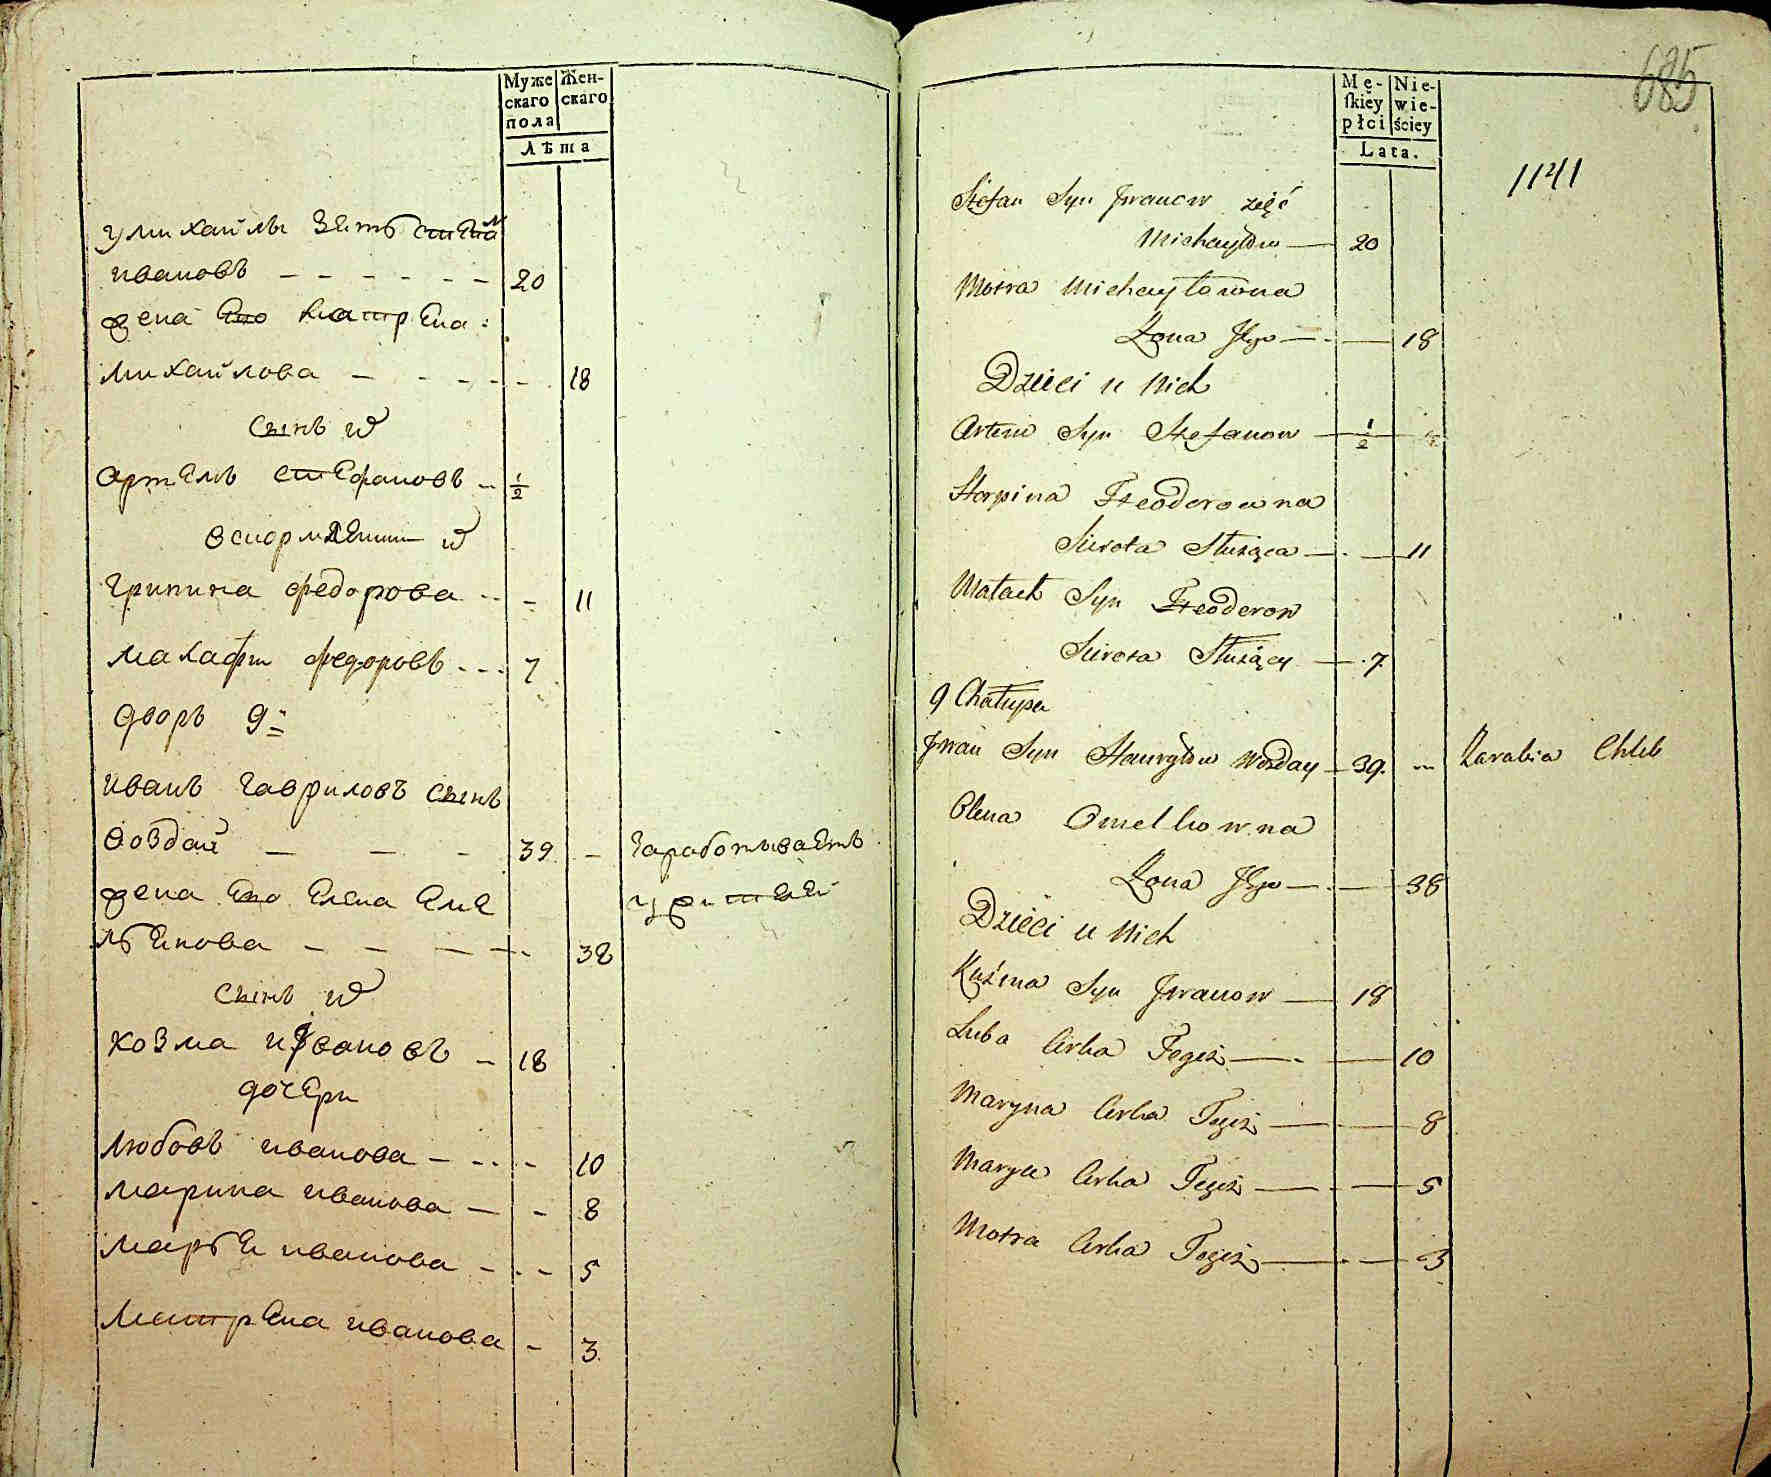 Муже
скаго
пола
Жен-
скаго
Лѣта
у михайлы зять стефан
ивановъ 20
жена его матрена
михайлова 18
сынъ их
артемъ стефановъ 1/2
грипина федорова 11
малафи федоровъ 7
дворъ 9й
иванъ гавриловъ сынъ
воздай 39 зарабатываетъ
жена его елена еме
льянова 38
сынъ их
козма ивановъ 18
дочери
любовь иванова 10
марина иванова 8
марья иванова 5
матрена иванова 3
685
Mę-
skiéy
płci
Nie-
wie-
ściey
Lata.
1141
Stefan Syn Jwanow zięć
Michayłow 20
Motra Michayłowna
Żona Jego 18
Dzieci u Nich
Artem Syn Stefanow 1/2
Horpina Fteodorowna
Sierota Służąca 11
Małach Syn Fteodorow
Sierota Służący 7
9 Chałupa
Jwan Syn Hawryłow Wozday 39 Zarabia Chleb
Olena Omelkowna
Żona Jego 38
Dzieci u Nich
Kuźma Syn Jwanow 18
Luba Corka Tegiż 10
Maryna Corka Tegiż 8
Marya Corka Tegiż 5
Motra Corka Tegiż 3